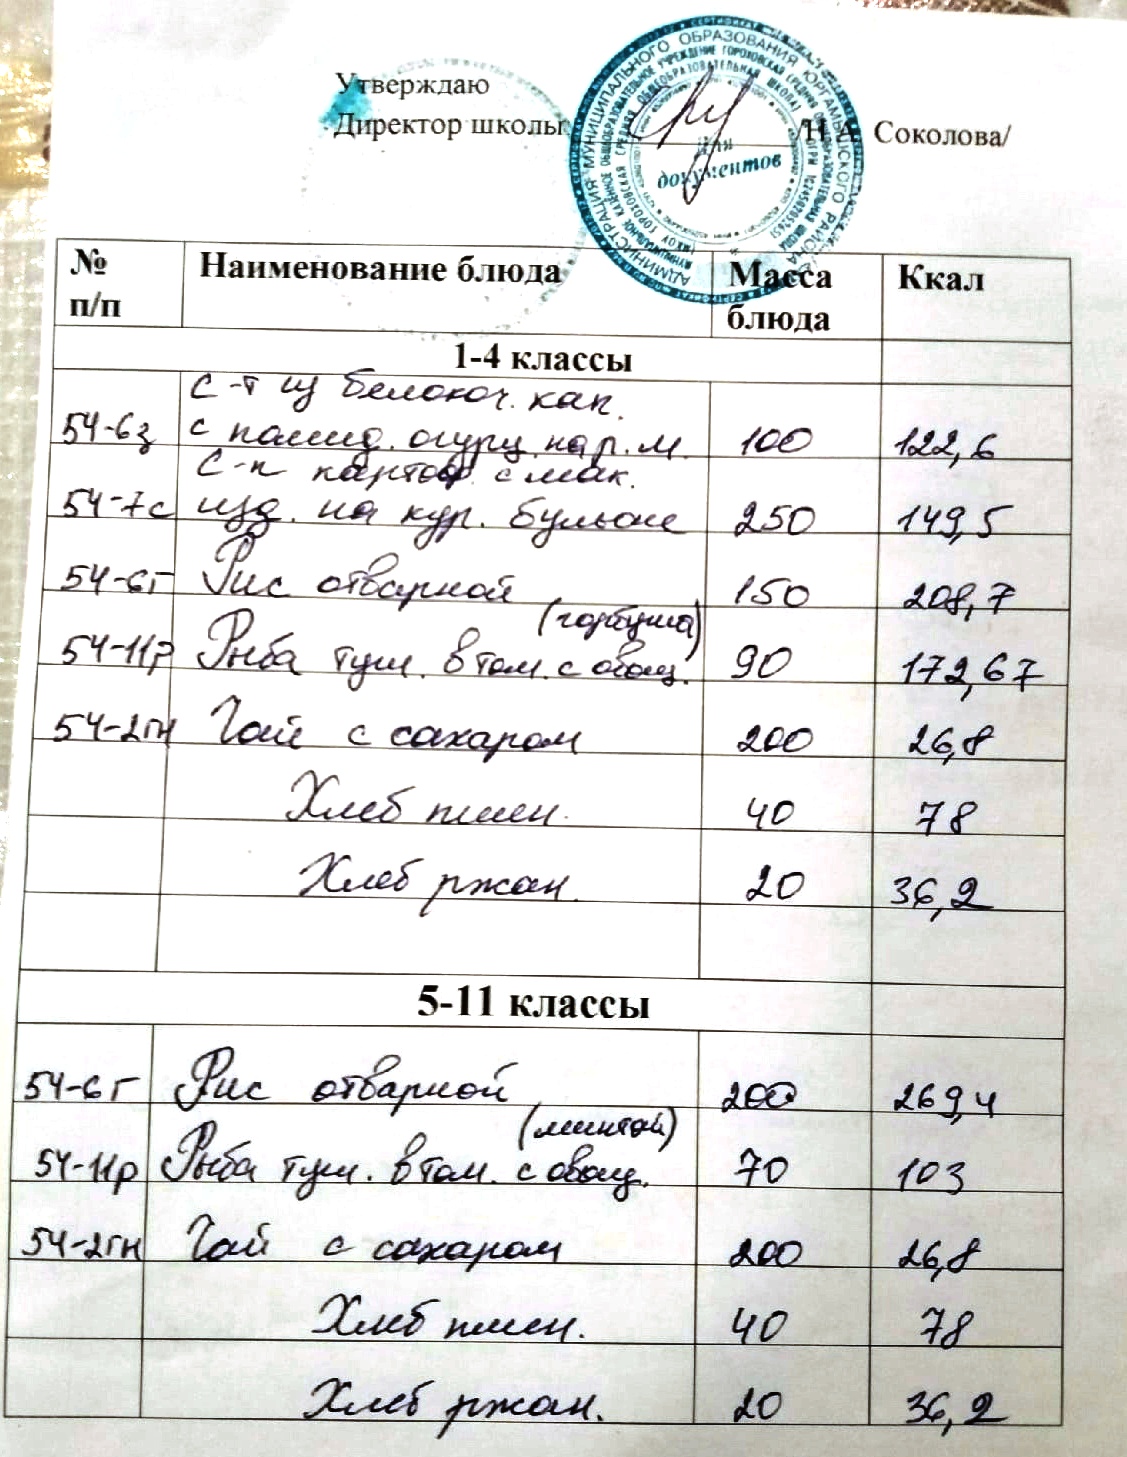 Утверждаю
Директор школы /Н.А. Соколова/
АДМИНИСТРАЦИЯ МУНИЦИПАЛЬНОГО ОБРАЗОВАНИЯ ЮРГАМЫШСКОГО РАЙОНА
Для
документов
№ п/п Наименование блюда Масса блюда Ккал
1-4 классы
с-т из белокоч. кап.
54-6з с помид. огурц. на р.м. 100 122,6
С-п картоф. с мак.
54-7с изд. на кур. бульоне 250 149,5
54-6г Рис отварной 150 208,7
(горбуша)
54-11р Рыба туш. в том. с овощ. 90 172,67
54-2гн Чай с сахаром 200 26,8
Хлеб пшен. 40 78
Хлеб ржан. 20 36,2
5-11 классы
54-6г Рис отварной 200 269,4
(минтай)
54-11р Рыба туш. в том. с овощ. 70 103
54-2гн Чай с сахаром 200 26,8
Хлеб пшен. 40 78
Хлеб ржан. 20 36,2